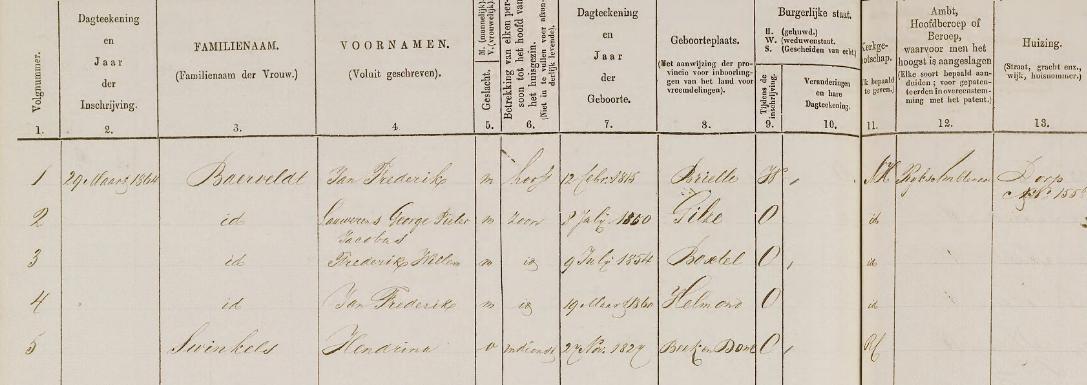 Volgnummer.
Dagteekening
en
Jaar
der
Inschrijving.
FAMILIENAAM.
(Familienaam der Vrouw.)
VOORNAMEN.
(Voluit geschreven).
M. (mannelijk).
V. (vrouwelijk).
Geslacht.
Betrekking van elken per-
soon tot het hoofd van
het huisgezin.
(Niet in te vullen voor afzon-
derlijk levende).
Dagteekening
en
Jaar
der
Geboorte.
Geboorteplaats.
(Met aanwijzing der pro-
vincie voor inboorlin-
gen en van het land voor
vreemdelingen).
Burgerlijke staat.
H. (gehuwd.)
W. (weduwenstaat.
S. (Gescheiden van echt)
Tijdens de
inschrijving.
Veranderingen
en hare
Dagteekening.
Kerkge-
ootschap.
Ambt,
Hoofdberoep of
Beroep,
waarvoor men het
hoogst is aangeslagen
(Elke soort bepaald aan-
duiden; voor gepaten-
teerden in overeenstem-
ming met het patent.)
Huizing.
(Straat, gracht enz.,
wijk, huisnommer.)
1. 2. 3. 4. 5. 6. 7. 8. 9. 10. 11. 12. 13.
1 29 Maart 1864 Baerveldt Jan Frederik m hoofd 12 Febr. 1815 Brielle W NH Dorp
2 id Lauwerens George Pieter m zoon 8 July 1850 Gilze O id
Jacobus
3 id Frederik Willem m id 9 July 1854 Boxtel O id
4 id Jan Frederik m id 19 Maart 1860 Helmond O id
5 Swinkels Hendrina v 27 Nov. 1827 Beek en Donk O RC